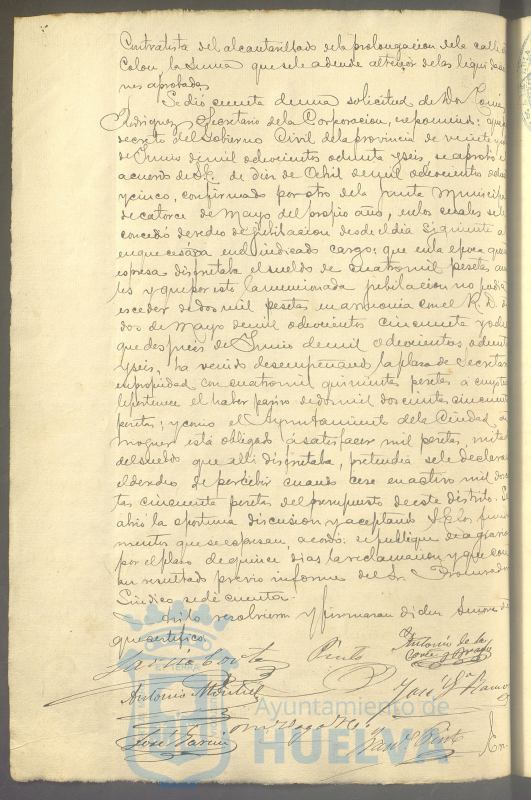 Contratista del alcantarillado de la prolongacion de la calle de
Colon, la suma que se le adeude al tenor de las liquidacio
nes aprobadas
Se dió cuenta de una solicitud de Don
Rodriguez Secretario de la Corporacion, exponiendo: que
decreto del Gobierno Civil de la provincia de veinte y
de Junio de mil ochocientos ochenta y seis, se aprobó el
acuerdo de S.E. de diez de Abril de mil ochocientos ochenta
y cinco, confirmado por otro de la Junta Municipal
de catorce de Mayo del propio año, en los cuales se le
concedió derecho de jubilacion desde el dia siguiente al
en que cesára en el indicado cargo: que en la epoca que se
espresa disfrutaba el sueldo de cuatro mil pesetas anua
les y que por esto la mencionada jubilacion no podia
esceder de dos mil pesetas en armonia con el R. D. de
dos de Mayo de mil ochocientos cincuenta y ocho
que despues de Junio de mil ochocientos ochenta
y seis, ha venido desempeñando la plaza de Secretario
en propiedad con cuatro mil quinientas pesetas á cuya
le pertenece el haber pasivo de dos mil doscientas cincuenta
pesetas; y como el Ayuntamiento de la Ciudad de
Moguer está obligado á satisfacer mil pesetas, mitad
del sueldo que alli disfrutaba, pretendia se le declarase
el derecho de percibir cuando cese en activo mil doscien
tas cincuenta pesetas del presupuesto de este distrito. Se
abrió la oportuna discusion y aceptando S.E. los funda
mentos que se espresan, acordó: se publique
por el plazo de quince dias la reclamacion y que con
su resultado previo informe del Sr. Procurador
Sindico se dé cuenta.
Asi lo resolvieron y firmaran dichos Señores de
que certifico.
Antonio de la
Corte y
Antonio
José Garcia
Ayuntamiento de
HUELVA